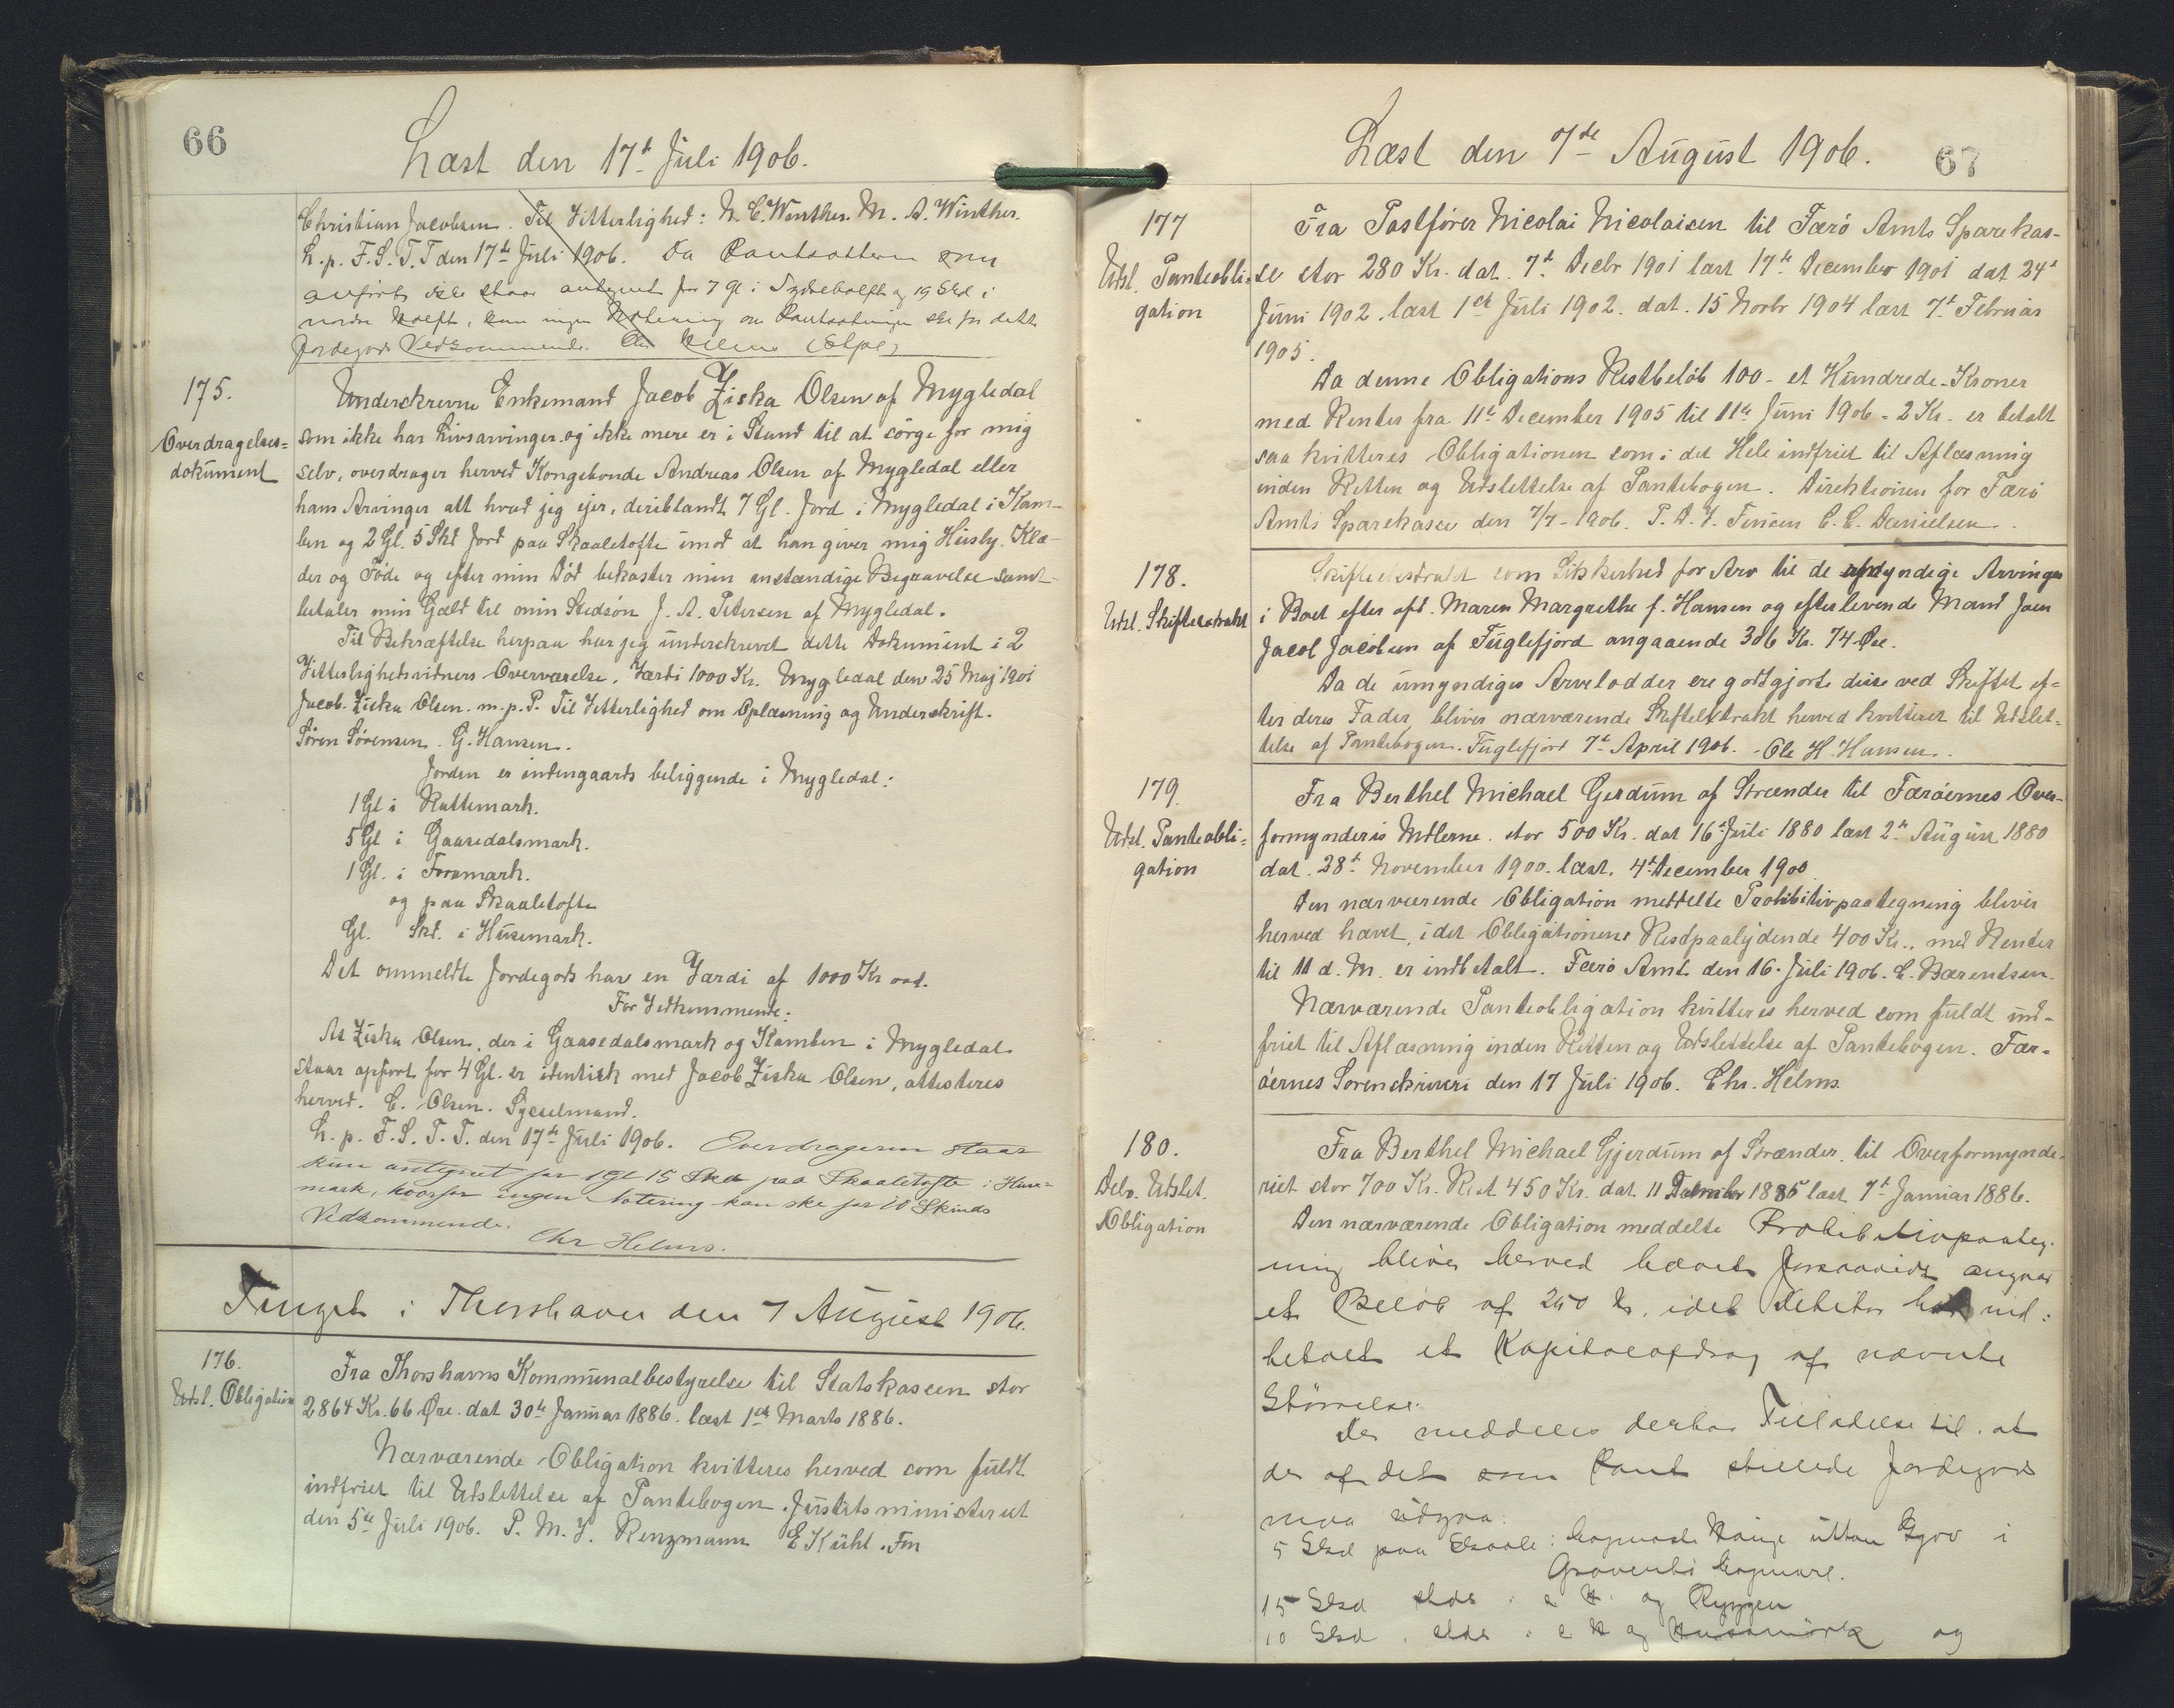 66
Læst den 17de Juli 1906.
Christian Jacobsen. Til Vitterlighed: N. C. Winther. M. A. Winther.
L. p. F. S. T. T den 17de Juli 1906. Da Pantsætteren som
anført ikke staar antegnet for 7 Gl i Sydrehalft og 19 Skd i
nordre Halft, kan ingen Notering om Pantsætningen ske for dette
Jordegods Vedkommende. Chr Helms
175.
Overdragelses=
dokument
Underskrevne Enkemand Jacob Ziska Olsen af Mygledal
som ikke har Livsarvinger og ikke mere er i Stand til at sörge for mig
selv, overdrager herved Kongebonde Andreas Olsen af Mygledal eller
hans Arvinger alt hvad jeg ejer, deriblandt 7 Gl. Jord i Mygledal i Kam-
ben og 2 Gl. 5 Skd Jord paa Skaaletofte imod at han giver mig Husly. Klæ-
der og Föde og efter min Död bekoster min anstændige Begravelse samt
betaler min Gæld til min Stedsön J. A. Petersen af Mygledal.
Til Bekræftelse herpaa har jeg underskrevet dette Dokument i 2
Vitterlighedsvidners Overværelse. Værdi 1000 Kr. Mygledal den 25 Maj 1901
Jacob Ziska Olsen. m. p. P. Til Vitterlighed om Oplæsning og Underskrift.
Sören Sörensen. G. Hansen.
Jorden er indengaards beliggende i Mygledal:
1 Gl i Rattemark.
5 Gl i Gaasedalsmark.
1 Gl. i Foramark.
og paa Skaaletofte
Gl. Skd. i Husemark.
Det ommeldte Jordegods har en Værdi af 1000 Kr.
For Vedkommende:
At Ziska Olsen, der i Gaasedalsmark og Kamben i Mygledal
staar opfört for 4 Gl. er identisk med Jacob Ziska Olsen, attesteres
herved. C. Olsen. Sysselmand.
L. p. F. S. T. T. den 17de Juli 1906. Overdrageren staar
kun antegnet for 1 Gl 15 Skd paa Skaaletofte i Huse=
mark, hvorfor ingen Notering kan ske for 10 Skinds
Vedkommende.
Chr Helms.
Tinget i Thorshavn den 7 August 1906.
176.
Udsl. Obligation
Fra Thorshavns Kommunalbestyrelse til Statskassen stor
2864 Kr. 66 Öre. dat 30te Januar 1886. læst 1ste Marts 1886.
Nærværende Obligation kvitteres herved som fuldt
indfriet til Udslettelse af Pantebogen. Justitsministeriet
den 5te Juli 1906. P. M. V. Renzmann E Kühl. Fm
Læst den 7de August 1906.
67
177
Udsl. Panteobli=
gation
Fra Postförer Nicolai Nicolaisen til Færö Amts Sparekas-
se stor 280 Kr. dat. 7de Decbr 1901 læst 17de December 1901 dat 24de
Juni 1902. læst 1ste Juli 1902. dat. 15 Novbr 1904 læst 7de Februar
1905.
Da denne Obligations Restbelöb 100 - et Hundrede - Kroner
med Renter fra 11te December 1905 til 11te Juni 1906 - 2 Kr. er betalt
saa kvitteres Obligationen som i det Hele indfriet til Aflæsning
inden Retten og Udslettelse af Pantebogen. Direktionen for Færö
Amts Sparekasse den 7/7-1906. P. D. V. Finsen C. C. Danielsen.
178.
Udsl. Skifteextrakt
Skifteekstrakt som Sikkerhed for Arv til de umyndige Arvinger
i Boet efter afd. Maren Margrethe f. Hansen og efterlevende Mand Joen
Jacob Jacobsen af Fuglefjord angaaende 386 Kr. 74 Öre.
Da de umyndiges Arvelodder ere godtgjorte disse ved Skiftet ef=
ter deres Fader, bliver nærværende Skifteextrakt herved kvitteret til Udslet=
telse af Pantebogen. Fuglefjord 7de April 1906. Ole H. Hansen.
179.
Udsl. Panteobli=
gation
Fra Berthel Michael Gerdum af Strænder til Færöernes Over-
formynderis Mdlerne. stor 500 Kr. dat 16de Juli 1880 læst 2de August 1880
dat. 28de November 1900. læst. 4de December 1900
Den nærværende Obligation meddelte Prohibitivpaategning bliver
herved hævet, idet Obligationens Restpaalydende 400 Kr., med Renter
til 11 d. M. er indbetalt. Færö Amt den 16. Juli 1906. C. Bærentsen.
Nærværende Panteobligation kvitteres herved som fuldt ind-
friet til Aflæsning inden Retten og Udslettelse af Pantebogen. Fær-
öernes Sorenskriveri den 17 Juli 1906. Chr. Helms.
180.
Delv. Udslet.
Obligation
Fra Berthel Michael Gjerdum af Strænder, til Overformynde-
riet stor 700 Kr. Rest 450 Kr. dat. 11 December 1885 læst 7de Januar 1886.
Den nærværende Obligation meddelte Prohibitivpaateg-
ning bliver herved hævet forsaavidt angaar
et Belöb af 250 Kr, idet Debitor har ind=
betalt et Kapitalafdrag af nævnte
Störrelse.
Der meddeles derhos Tilladelse til at
der af det som Pant stillede Jordegods
maa udgaa:
5 Skd paa Skaale: uttan Gjov i
15 Skd og Ryggen
10 Skd og Husamörk og